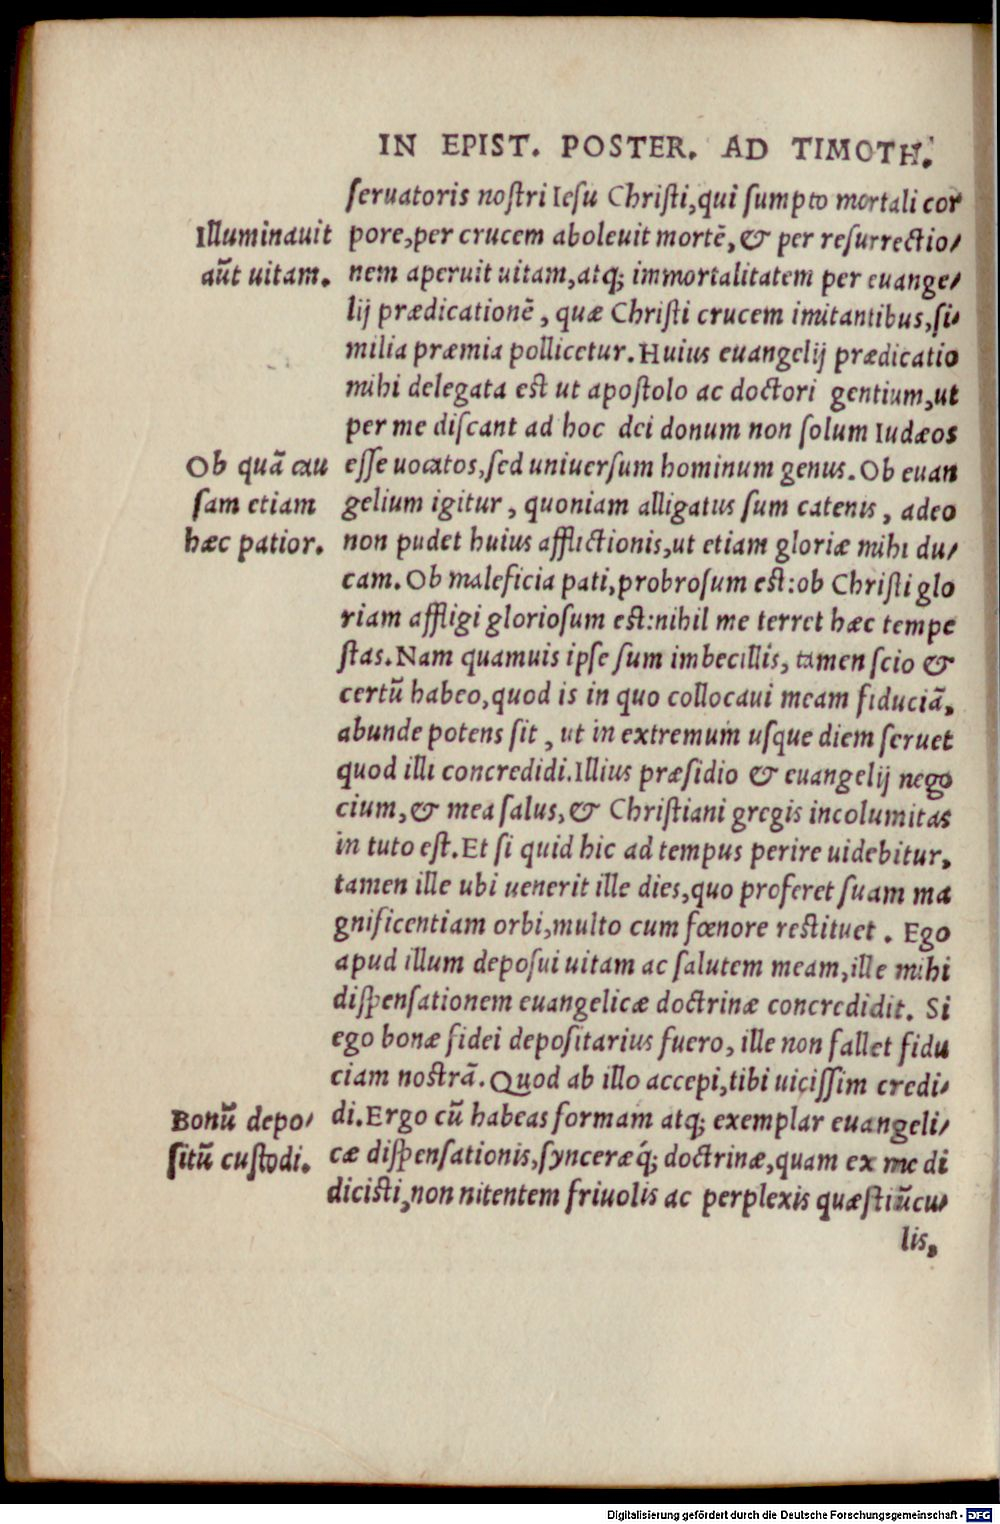 IN EPIST. POSTER. AD TIMOTH.
seruatoris nostri Iesu Christi, qui sumpto mortali cor
Illuminauit
aūt uitam.
pore, per crucem aboleuit mortē, & per resurrectio/
nem aperuit uitam, atq; immortalitatem per euange/
lij prædicationē, quæ Christi crucem imitantibus, si/
milia præmia pollicetur. Huius euangelij prædicatio
mihi delegata est ut apostolo ac doctori gentium, ut
per me discant ad hoc dei donum non solum Iudæos
Ob quā cau
sam etiam
hæc patior.
esse uocatos, sed uniuersum hominum genus. Ob euan
gelium igitur, quoniam alligatus sum catenis, adeo
non pudet huius afflictionis, ut etiam gloriæ mihi du/
cam. Ob maleficia pati, probrosum est: ob Christi glo
riam affligi gloriosum est: nihil me terret hæc tempe
stas. Nam quamuis ipse sum imbecillis, tamen scio &
certū habeo, quod is in quo collocaui meam fiduciā,
abunde potens sit, ut in extremum usque diem seruet
quod illi concredidi. Illius præsidio & euangelij nego
cium, & mea salus, & Christiani gregis incolumitas
in tuto est. Et si quid hic ad tempus perire uidebitur,
tamen ille ubi uenerit ille dies, quo proferet suam ma
gnificentiam orbi, multo cum fœnore restituet. Ego
apud illum deposui uitam ac salutem meam, ille mihi
dispensationem euangelicæ doctrinæ concredidit. Si
ego bonæ fidei depositarius fuero, ille non fallet fidu
ciam nostrā. Quod ab illo accepi, tibi uicissim credi/
Bonū depo/
sitū custodi.
di. Ergo cū habeas formam atq; exemplar euangeli/
cæ dispensationis, synceræq́; doctrinæ, quam ex me di
dicisti, non nitentem friuolis ac perplexis quæstiūcu/
lis,
Digitalisierung gefördert durch die Deutsche Forschungsgemeinschaft - DFG